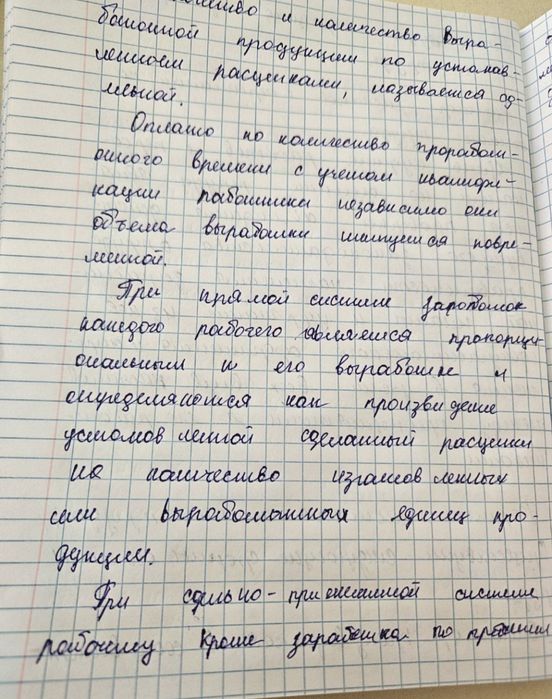 и количество выра-
ботанной продукции по установ-
ленным расценкам, называется од-
льной.
Оплата по количество проработ-
анного времени с учетом квалифи-
кации работника независимо от
объема выработки именуется повре-
менной.
При прямой системе заработок
каждого рабочего является пропорци
ональным к его выработке и
определяются как произведение
установленной сделанный расценки
на количество изготовленных
или выработанных единиц про-
дукции.
При сдельно-премиальной системе
рабочему кроме заработка по прямым